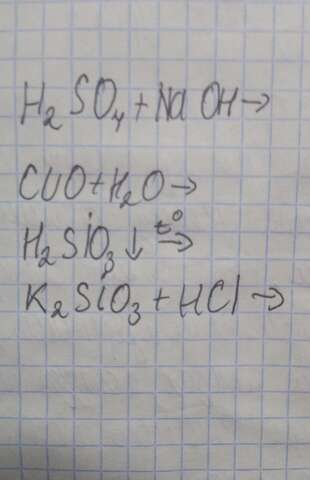 H₂SO₄ + NaOH →
CuO + H₂O →
H₂SiO₃ ↓ t° →
K₂SiO₃ + HCl →